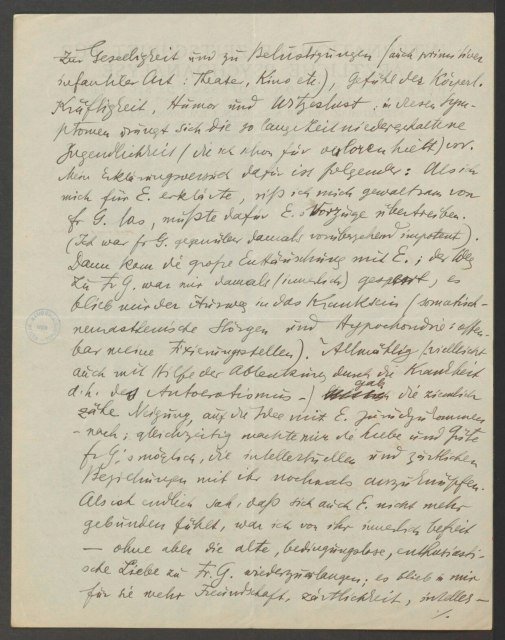 zur Geselligkeit und zu Belustigungen (auch primitiver
infantiler Art: Theater, Kino etc.), Gefühl der körperl.
Kräftigkeit, Humor und Witzeslust: in diesen Sym-
ptomen drängt sich die so lange Zeit niedergehaltene
Jugendlichkeit (die ich schon für verloren hielt) vor.
Mein Erklärungsversuch dafür ist folgender: Als ich
mich für E. erklärte, riß ich mich gewaltsam von
Fr G. los, mußte dafür E.s Vorzüge übertreiben.
(Ich war Fr G. gegenüber damals vorübergehend impotent).
Dann kam die große Enttäuschung mit E.; der Weg
zu Fr G. war mir damals (innerlich) gesperrt, es
blieb nur der Ausweg in das Kranksein (somatisch-
neurasthenische Störgen und Hypochondrie: offen-
bar meine Fixierungsstellen). Allmählig (vielleicht
auch mit Hilfe der Ablenkung durch die Krankheit
d.h. des Autoerotismus -) gab die ziemlich
zähe Neigung, auf die Idee mit E. zurückzukommen
- nach; gleichzeitig machte mir die Liebe und Güte
Fr G.'s möglich, die intellektuellen und zärtlichen
Beziehungen mit ihr nochmals anzuknüpfen.
Als ich endlich sah, daß sich auch E. nicht mehr
gebunden fühlt, war ich von ihr innerlich befreit
— ohne aber die alte, bedingungslose, enthusiasti-
sche Liebe zu Fr. G. wiederzuerlangen; es blieb in mir
für sie mehr Freundschaft, Zärtlichkeit, intellec-
./.